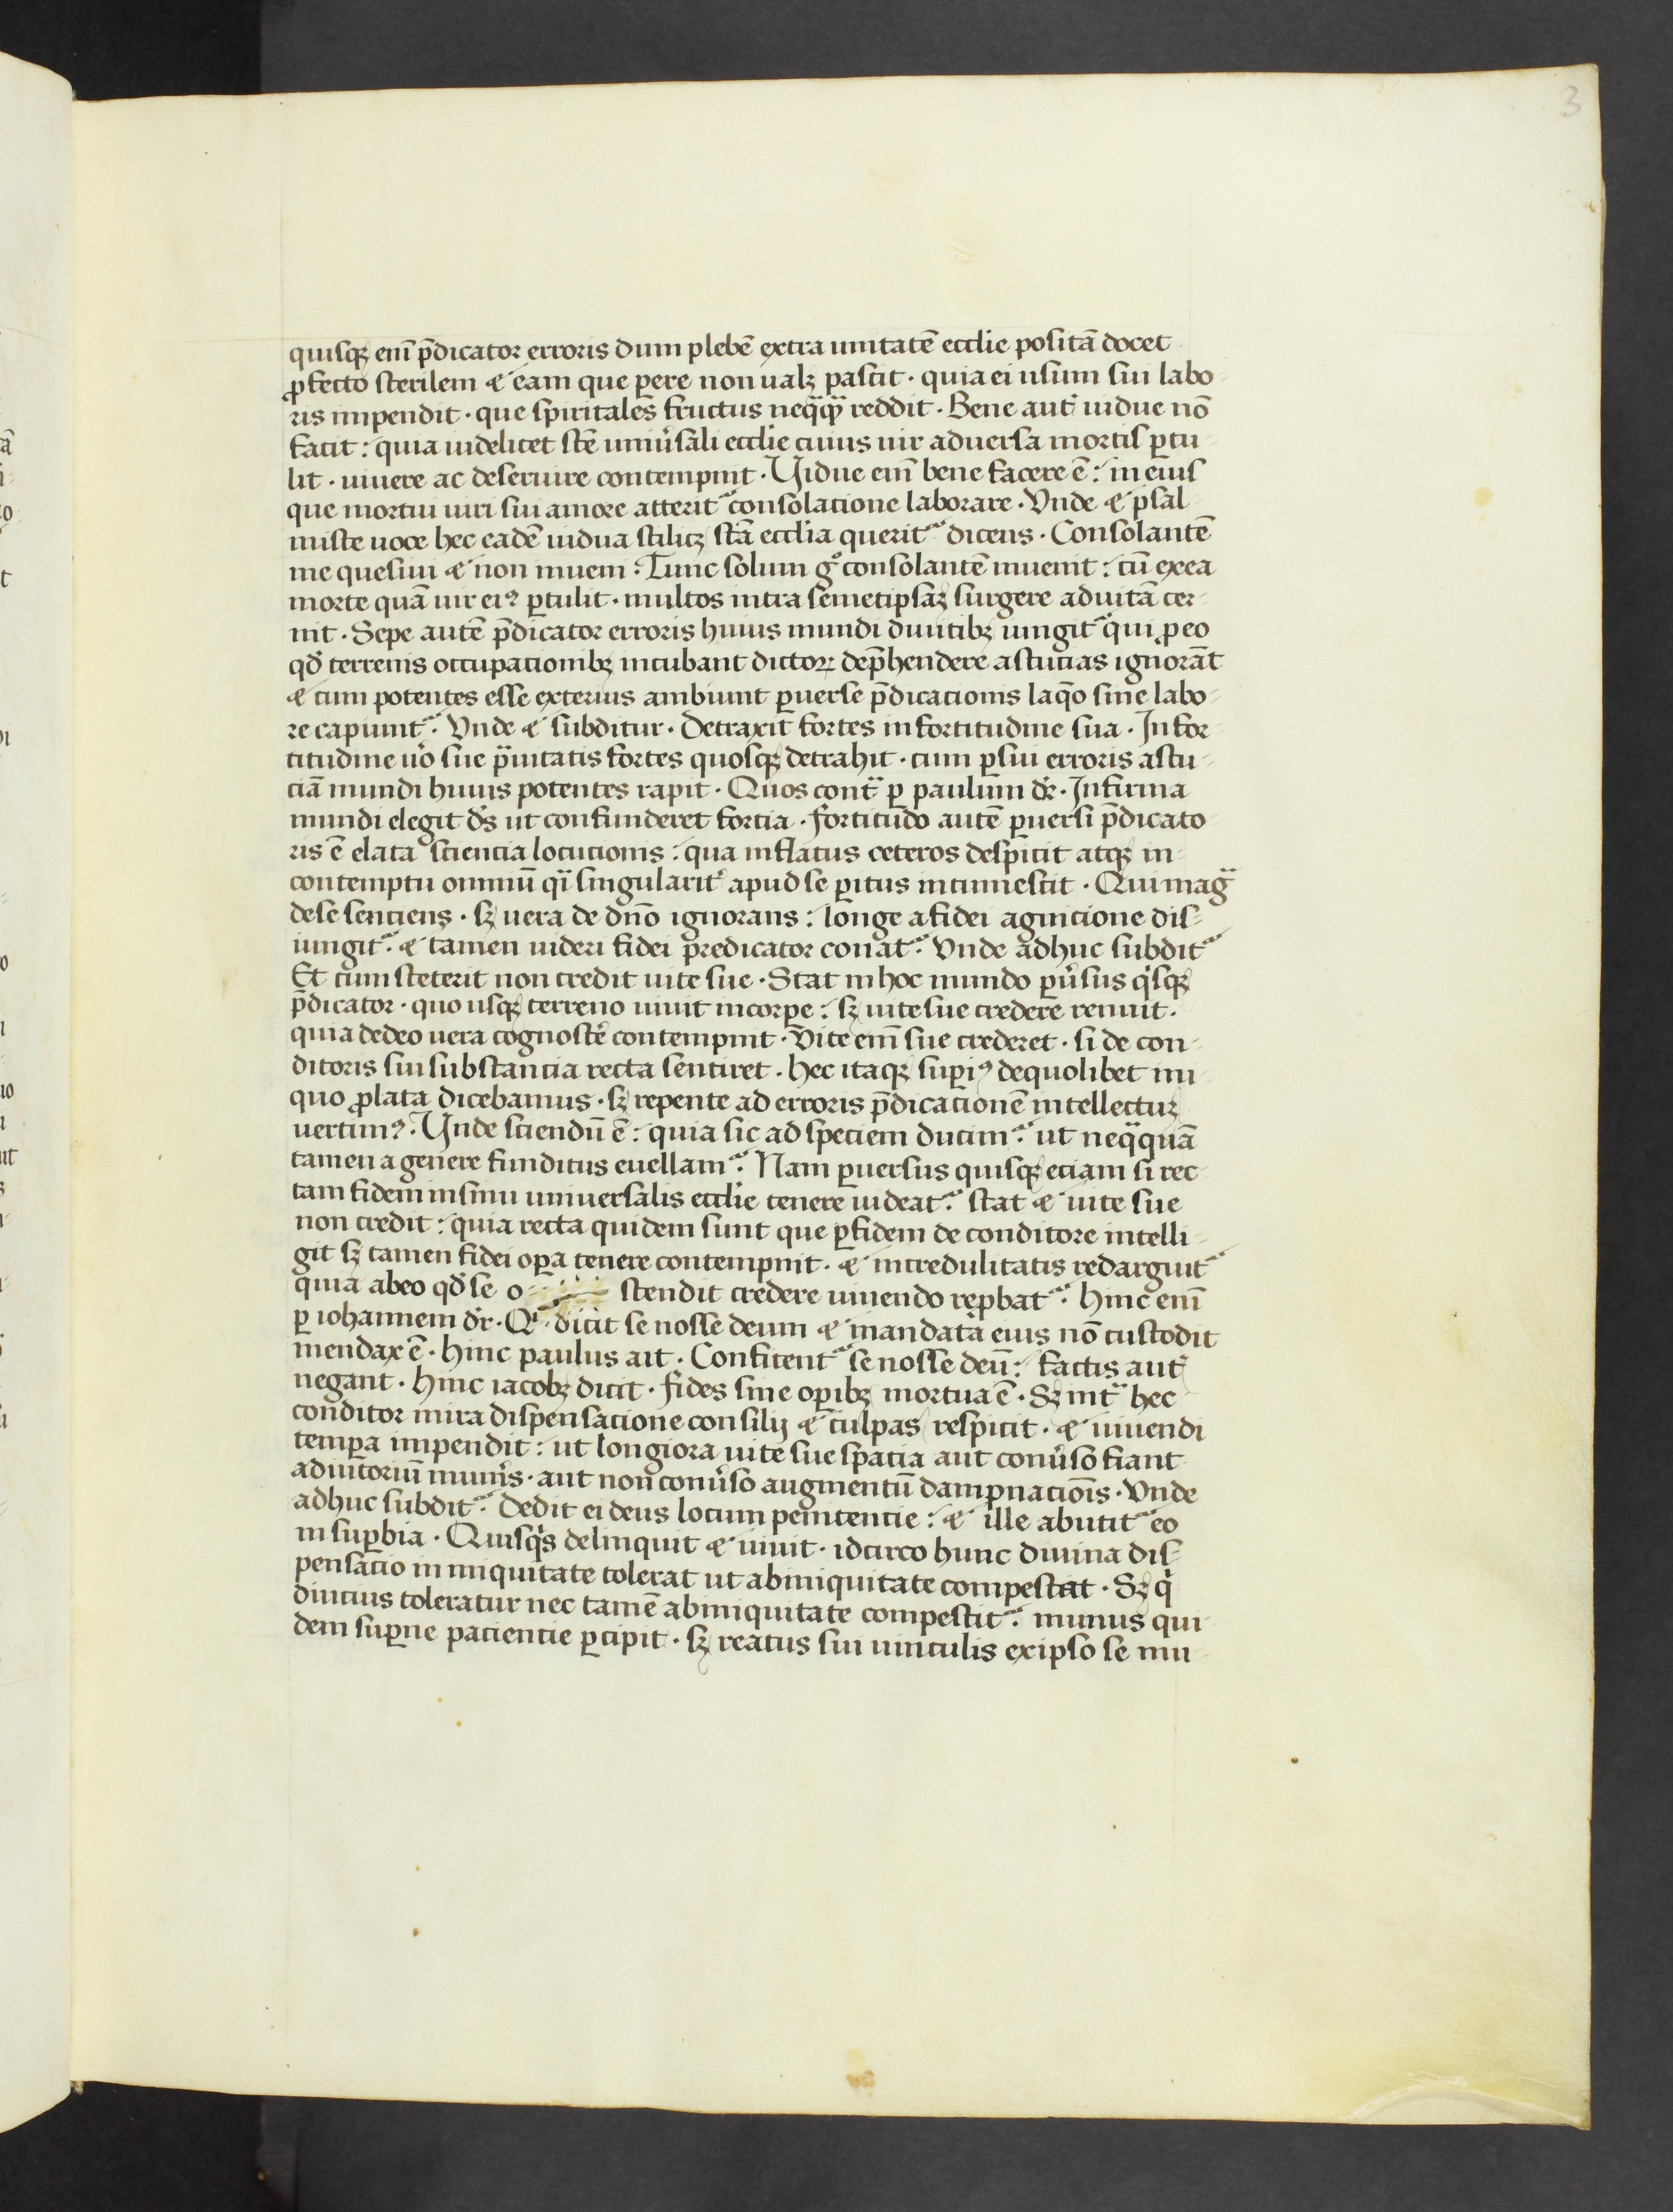 3
quisqꝫ eni᷑ p̄dicator erroris dum plebē extra unitatē eccl̄ie positā docet
ꝓfecto sterilem ⁊ eam que ꝑere non ualꝫ pascit · quia ei usum sui labo-
ris impendit · que spiritales fructus neqͣqͣꝫ reddit · Bene aut᷑ uidue nō
facit : quia uidelicet scē uniu᷑sali eccl̄ie cuius uir aduersa mortis ꝑtu-
lit · uiuere ac deseruire contempnit · Uidue eni᷑ bene facere ē : in eius
que mortui uiri sui amore atterit᷑ consolacione laborare · Vnde ⁊ psal-
miste uoce hec eadē uidua scilicꝫ scā eccl̄ia querit᷑ dicens · Consolantē
me quesiui ⁊ non inueni : Tunc solum gͦ consolantē inuenit : cū ex ea
morte quā uir eiꝰ ꝑtulit · multos intra semetipsaꝫ surgere ad uitā cer-
nit · Sepe autē p̄dicator erroris huius mundi diuitibꝫ iungit᷑ qui ꝓ eo
qd̄ terrenis occupacionibꝫ incubant dictoꝝ dep̄hendere astucias ignorāt
⁊ cum potentes esse exterius ambiunt ꝑuerse p̄dicacionis laqͦo sine labo-
re capiunt᷑ · Vnde ⁊ subditur · Detraxit fortes in fortitudine sua · In for-
titudine u᷑o sue p̄uitatis fortes quosqꝫ detrahit · cum ꝑ sui erroris astu-
ciā mundi huius potentes rapit · Quos contͣ ꝑ paulum dr᷑ · Infirma
mundi elegit ds̄ ut confunderet fortia · fortitudo autē ꝑuersi p̄dicato-
ris ē elata sciencia locucionis : qua inflatus ceteros despicit atqꝫ in-
contemptu omniū qͣi singularit᷑ apud se ꝑitus intumescit · Qui magͣ
de se senciens · sꝫ uera de dn̄o ignorans : longe a fidei agnicione dis-
iungit᷑ · ⁊ tamen uideri fidei predicator conat᷑ · Vnde adhuc subdit᷑
Et cum steterit non credit uite sue · Stat in hoc mundo ꝑu᷑sus qͥsqꝫ
p̄dicator · quo usqꝫ terreno uiuit in corꝑe : sꝫ uite sue credere renuit ·
quia de deo uera cognosce᷑ contempnit · Vite eni᷑ sue crederet · si de con-
ditoris sui substancia recta sentiret · hec itaqꝫ suꝑiꝰ de quolibet ini-
quo ꝓlata dicebamus · sꝫ repente ad erroris p̄dicacionē intellectuꝫ
uertimꝰ · Unde sciendū ē : quia sic ad speciem ducim᷑ · ut neqͣquā
tamen a genere funditus euellam᷑ · Nam ꝑuersus quisqꝫ eciam si rec-
tam fidem in sinu uniuersalis eccl̄ie tenere uideat᷑ · stat ⁊ uite sue
non credit : quia recta quidem sunt que ꝑ fidem de conditore intelli-
git sꝫ tamen fidei oꝑa tenere contempnit · ⁊ incredulitatis redarguit᷑
quia ab eo qd̄ se o stendit credere uiuendo reꝓbat᷑ · hinc eni᷑
ꝑ iohannem dr᷑ · Qͥ dicit se nosse deum ⁊ mandata eius nō custodit
mendax ē · hinc paulus ait · Confitent᷑ se nosse deū : factis aut᷑
negant · hinc iacobꝫ dicit · fides sine oꝑibꝫ mortua ē · Sꝫ int᷑ hec
conditor mira dispensacione consilij ⁊ culpas respicit · ⁊ uiuendi
temꝑa impendit : ut longiora uite sue spacia aut conu᷑so fiant
adiutoriū mun᷑is · aut non conu᷑so augmentū dampnacio᷑is · Vnde
adhuc subdit᷑ · Dedit ei deus locum penitencie : ⁊ ille abutit᷑ eo
in suꝑbia · Quisqͥs delinquit ⁊ uiuit · idcirco hunc diuina dis-
pensacio in iniquitate tolerat ut ab iniquitate compescat · Sꝫ qͥ
diucius toleratur nec tamē ab iniquitate compescit᷑ · munus qui-
dem suꝑne paciencie ꝑcipit · sꝫ reatus sui uinculis ex ipso se mu-